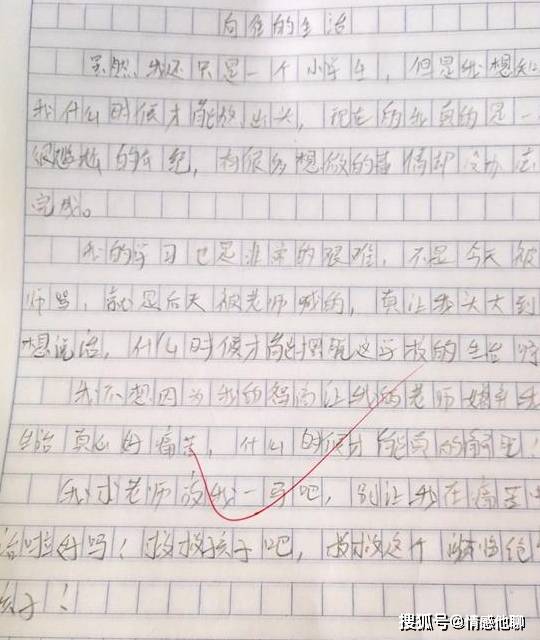 向往的生活
虽然,我还只是一个小学生,但是我想知
我什么时候才能放出头,现在的我真的是一
很尴尬的年纪,有很多想做的事情却没办法
完成。
我的学习也是非常的艰难,不是今天被
师骂,就是后天被老师喊的,真让我头大到
想说话,什么时候才能摆脱这学校的生活呀
我不想因为我的智商让我的老师嫌弃我
生活真的好痛苦,什么时候才能真的解脱!
我求老师放我一马吧,别让我在痛苦中
活啦好吗!救救孩子吧,救救这个濒临绝
孩子!
搜狐号@情感他聊